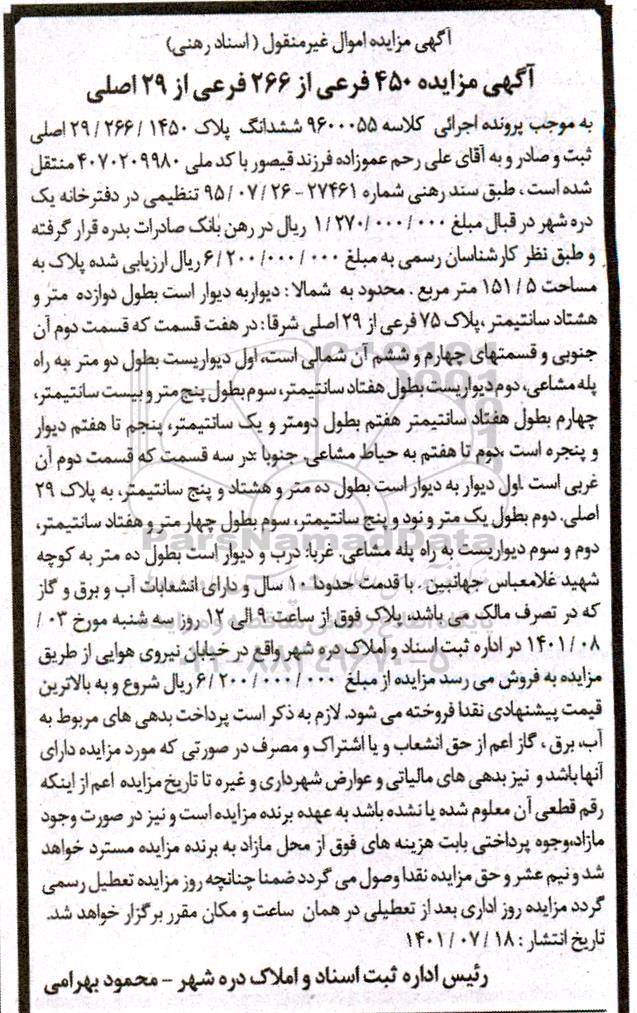 آگهی مزایده اموال غیرمنقول (اسناد رهنی)
آگهی مزایده ۴۵۰ فرعی از ۲۶۶ فرعی از ۲۹ اصلی
به موجب پرونده اجرائی کلاسه ۹۶۰۰۰۵۵ ششدانگ پلاک ۲۹/۲۶۶/۱۴۵۰ اصلی
ثبت و صادر و به آقای علی رحم عموزاده فرزند قیصور با کد ملی ۴۰۷۰۲۰۹۹۸۰ منتقل
شده است، طبق سند رهنی شماره ۲۷۴۶۱-۹۵/۰۷/۲۶ تنظیمی در دفترخانه یک
دره شهر در قبال مبلغ ۱/۲۷۰/۰۰۰/۰۰۰ ریال در رهن بانک صادرات بدره قرار گرفته
و طبق نظر کارشناسان رسمی به مبلغ ۶/۲۰۰/۰۰۰/۰۰۰ ریال ارزیابی شده پلاک به
مساحت ۱۵۱/۵ متر مربع. محدود به شمالا: دیواربه دیوار است بطول دوازده متر و
هشتاد سانتیمتر،پلاک ۷۵ فرعی از ۲۹ اصلی شرقا: در هفت قسمت که قسمت دوم آن
جنوبی و قسمتهای چهارم و ششم آن شمالی است، اول دیواریست بطول دو متر ،به راه
پله مشاعی، دوم دیواریست بطول هفتاد سانتیمتر، سوم بطول پنج متر و بیست سانتیمتر،
چهارم بطول هفتاد سانتیمتر هفتم بطول دومتر و یک سانتیمتر، پنجم تا هفتم دیوار
و پنجره است ،دوم تا هفتم به حیاط مشاعی. جنوبا :در سه قسمت که قسمت دوم آن
غربی است .اول دیوار به دیوار است بطول ده متر و هشتاد و پنج سانتیمتر، به پلاک ۲۹
اصلی. دوم بطول یک متر و نود و پنج سانتیمتر، سوم بطول چهار متر و هفتاد سانتیمتر،
دوم و سوم دیواریست به راه پله مشاعی. غربا: درب و دیوار است بطول ده متر به کوچه
شهید غلامعباس جهانبین . با قدمت حدودا ۱۰ سال و دارای انشعابات آب و برق و گاز
که در تصرف مالک می باشد، پلاک فوق از ساعت ۹ الی ۱۲ روز سه شنبه مورخ ۰۳/
۱۴۰۱/۰۸ در اداره ثبت اسناد و املاک دره شهر واقع در خیابان نیروی هوایی از طریق
مزایده به فروش می رسد مزایده از مبلغ ۶/۲۰۰/۰۰۰/۰۰۰ ریال شروع و به بالاترین
قیمت پیشنهادی نقدا فروخته می شود. لازم به ذکر است پرداخت بدهی های مربوط به
آب، برق ، گاز اعم از حق انشعاب و یا اشتراک و مصرف در صورتی که مورد مزایده دارای
آنها باشد و نیز بدهی های مالیاتی و عوارض شهرداری و غیره تا تاریخ مزایده اعم از اینکه
رقم قطعی آن معلوم شده یا نشده باشد به عهده برنده مزایده است و نیز در صورت وجود
مازاد،وجوه پرداختی بابت هزینه های فوق از محل مازاد به برنده مزایده مسترد خواهد
شد و نیم عشر و حق مزایده نقدا وصول می گردد ضمنا چنانچه روز مزایده تعطیل رسمی
گردد مزایده روز اداری بعد از تعطیلی در همان ساعت و مکان مقرر برگزار خواهد شد.
تاریخ انتشار: ۱۴۰۱/۰۷/۱۸
رئیس اداره ثبت اسناد و املاک دره شهر - محمود بهرامی
ParsNamadData